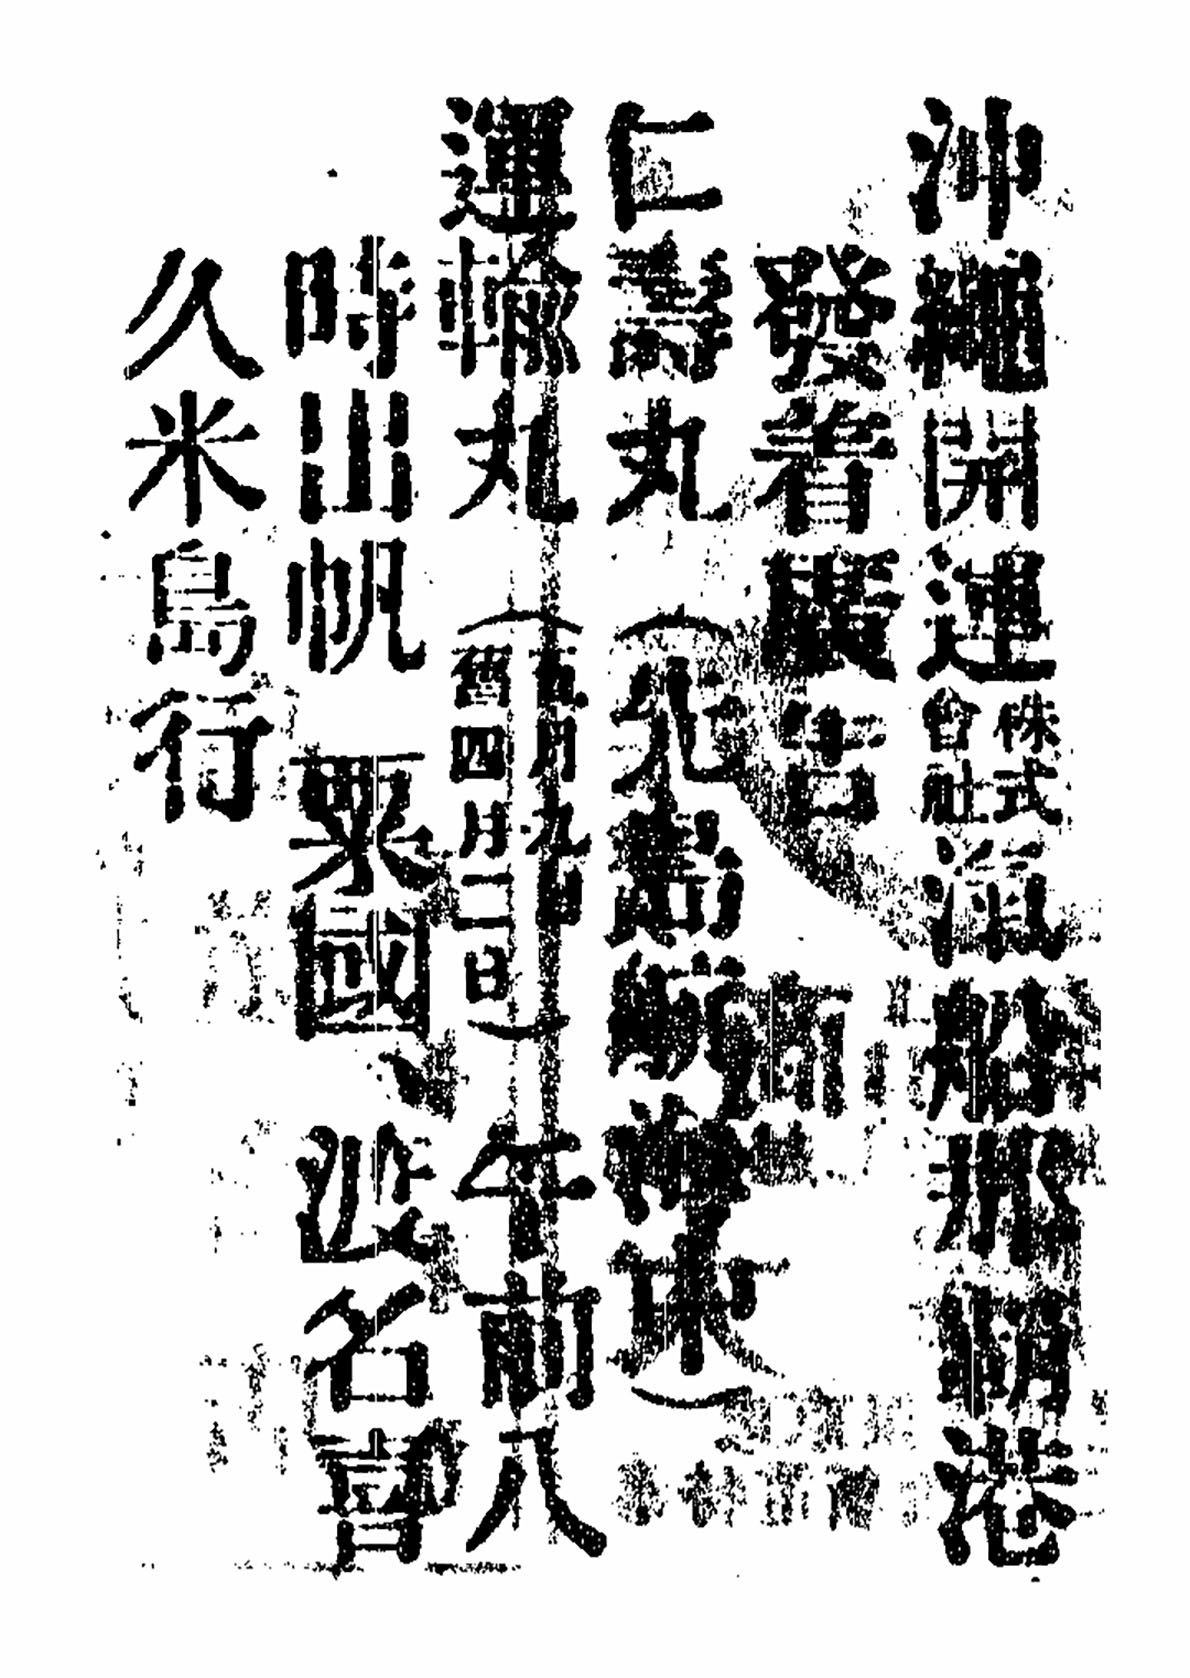 沖繩開運株式會社滊船那覇港
發着廣告
仁壽丸（島航）
運輸丸（五月九日舊四月二日）午前八
時出帆 粟國、渡名喜
久米島行